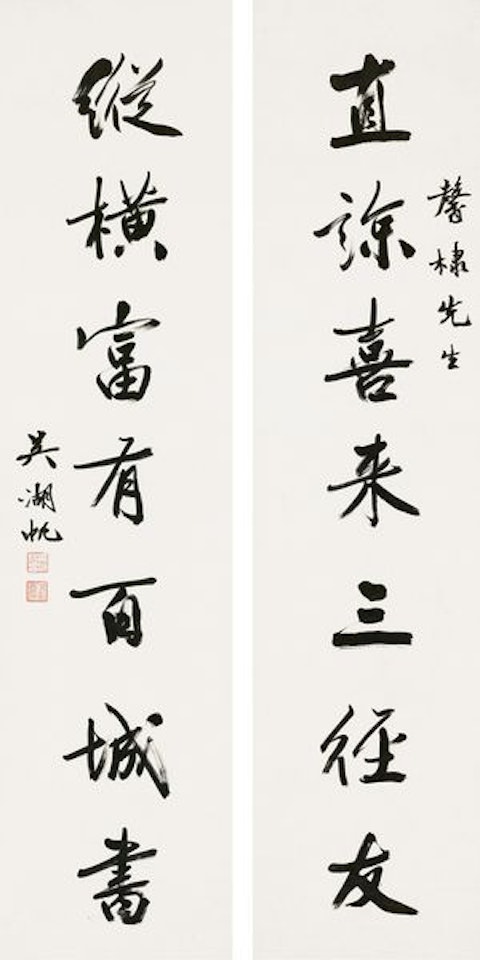 馨棣先生
直諒喜来三徑友
縱橫富有百城書
吳湖帆